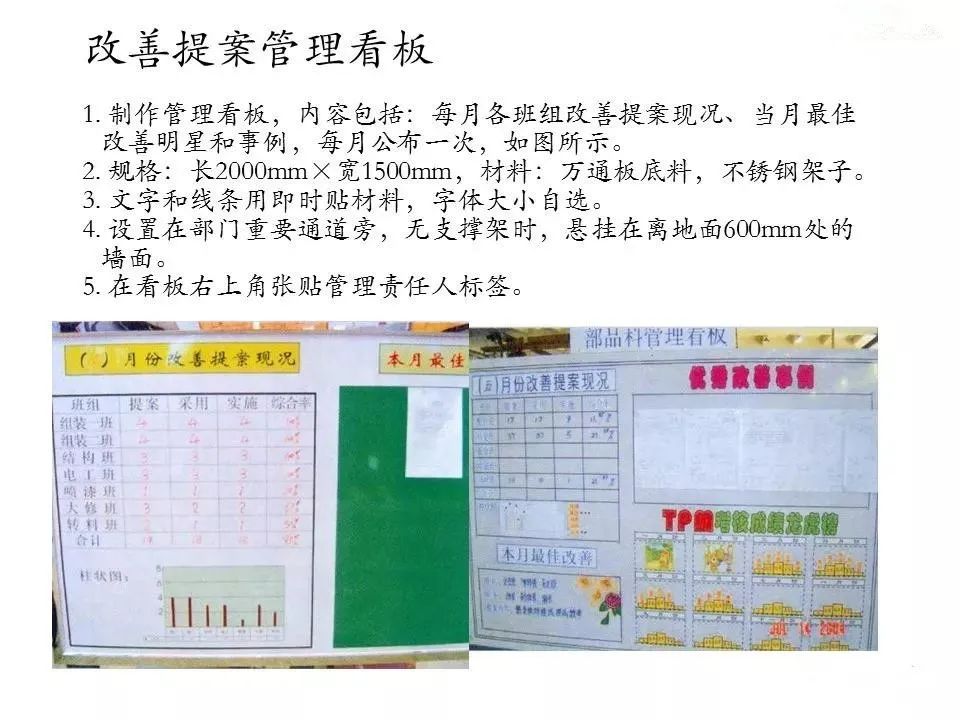 改善提案管理看板
1. 制作管理看板，内容包括：每月各班组改善提案现况、当月最佳
改善明星和事例，每月公布一次，如图所示。
2. 规格：长2000mm×宽1500mm，材料：万通板底料，不锈钢架子。
3. 文字和线条用即时贴材料，字体大小自选。
4. 设置在部门重要通道旁，无支撑架时，悬挂在离地面600mm处的
墙面。
5. 在看板右上角张贴管理责任人标签。
( ) 月份改善提案现况
本月最佳
班组 提案 采用 实施 综合率
组装一班 4 4 4
组装二班 4 4 4
结构班 3 3 3
电工班 3 3 3
喷漆班 1 1 1
大修班 3 2 2
转料班
合计
柱状图：
部品科管理看板
(五)月份改善提案现况
优秀改善事例
本月最佳改善
TPM考核成绩龙虎榜